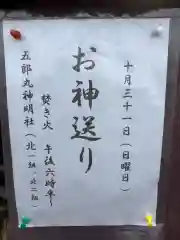 十月三十一日(日曜日)
お神送り
焚き火 午後六時半〜
五郎丸神明社(北一組、北二組)